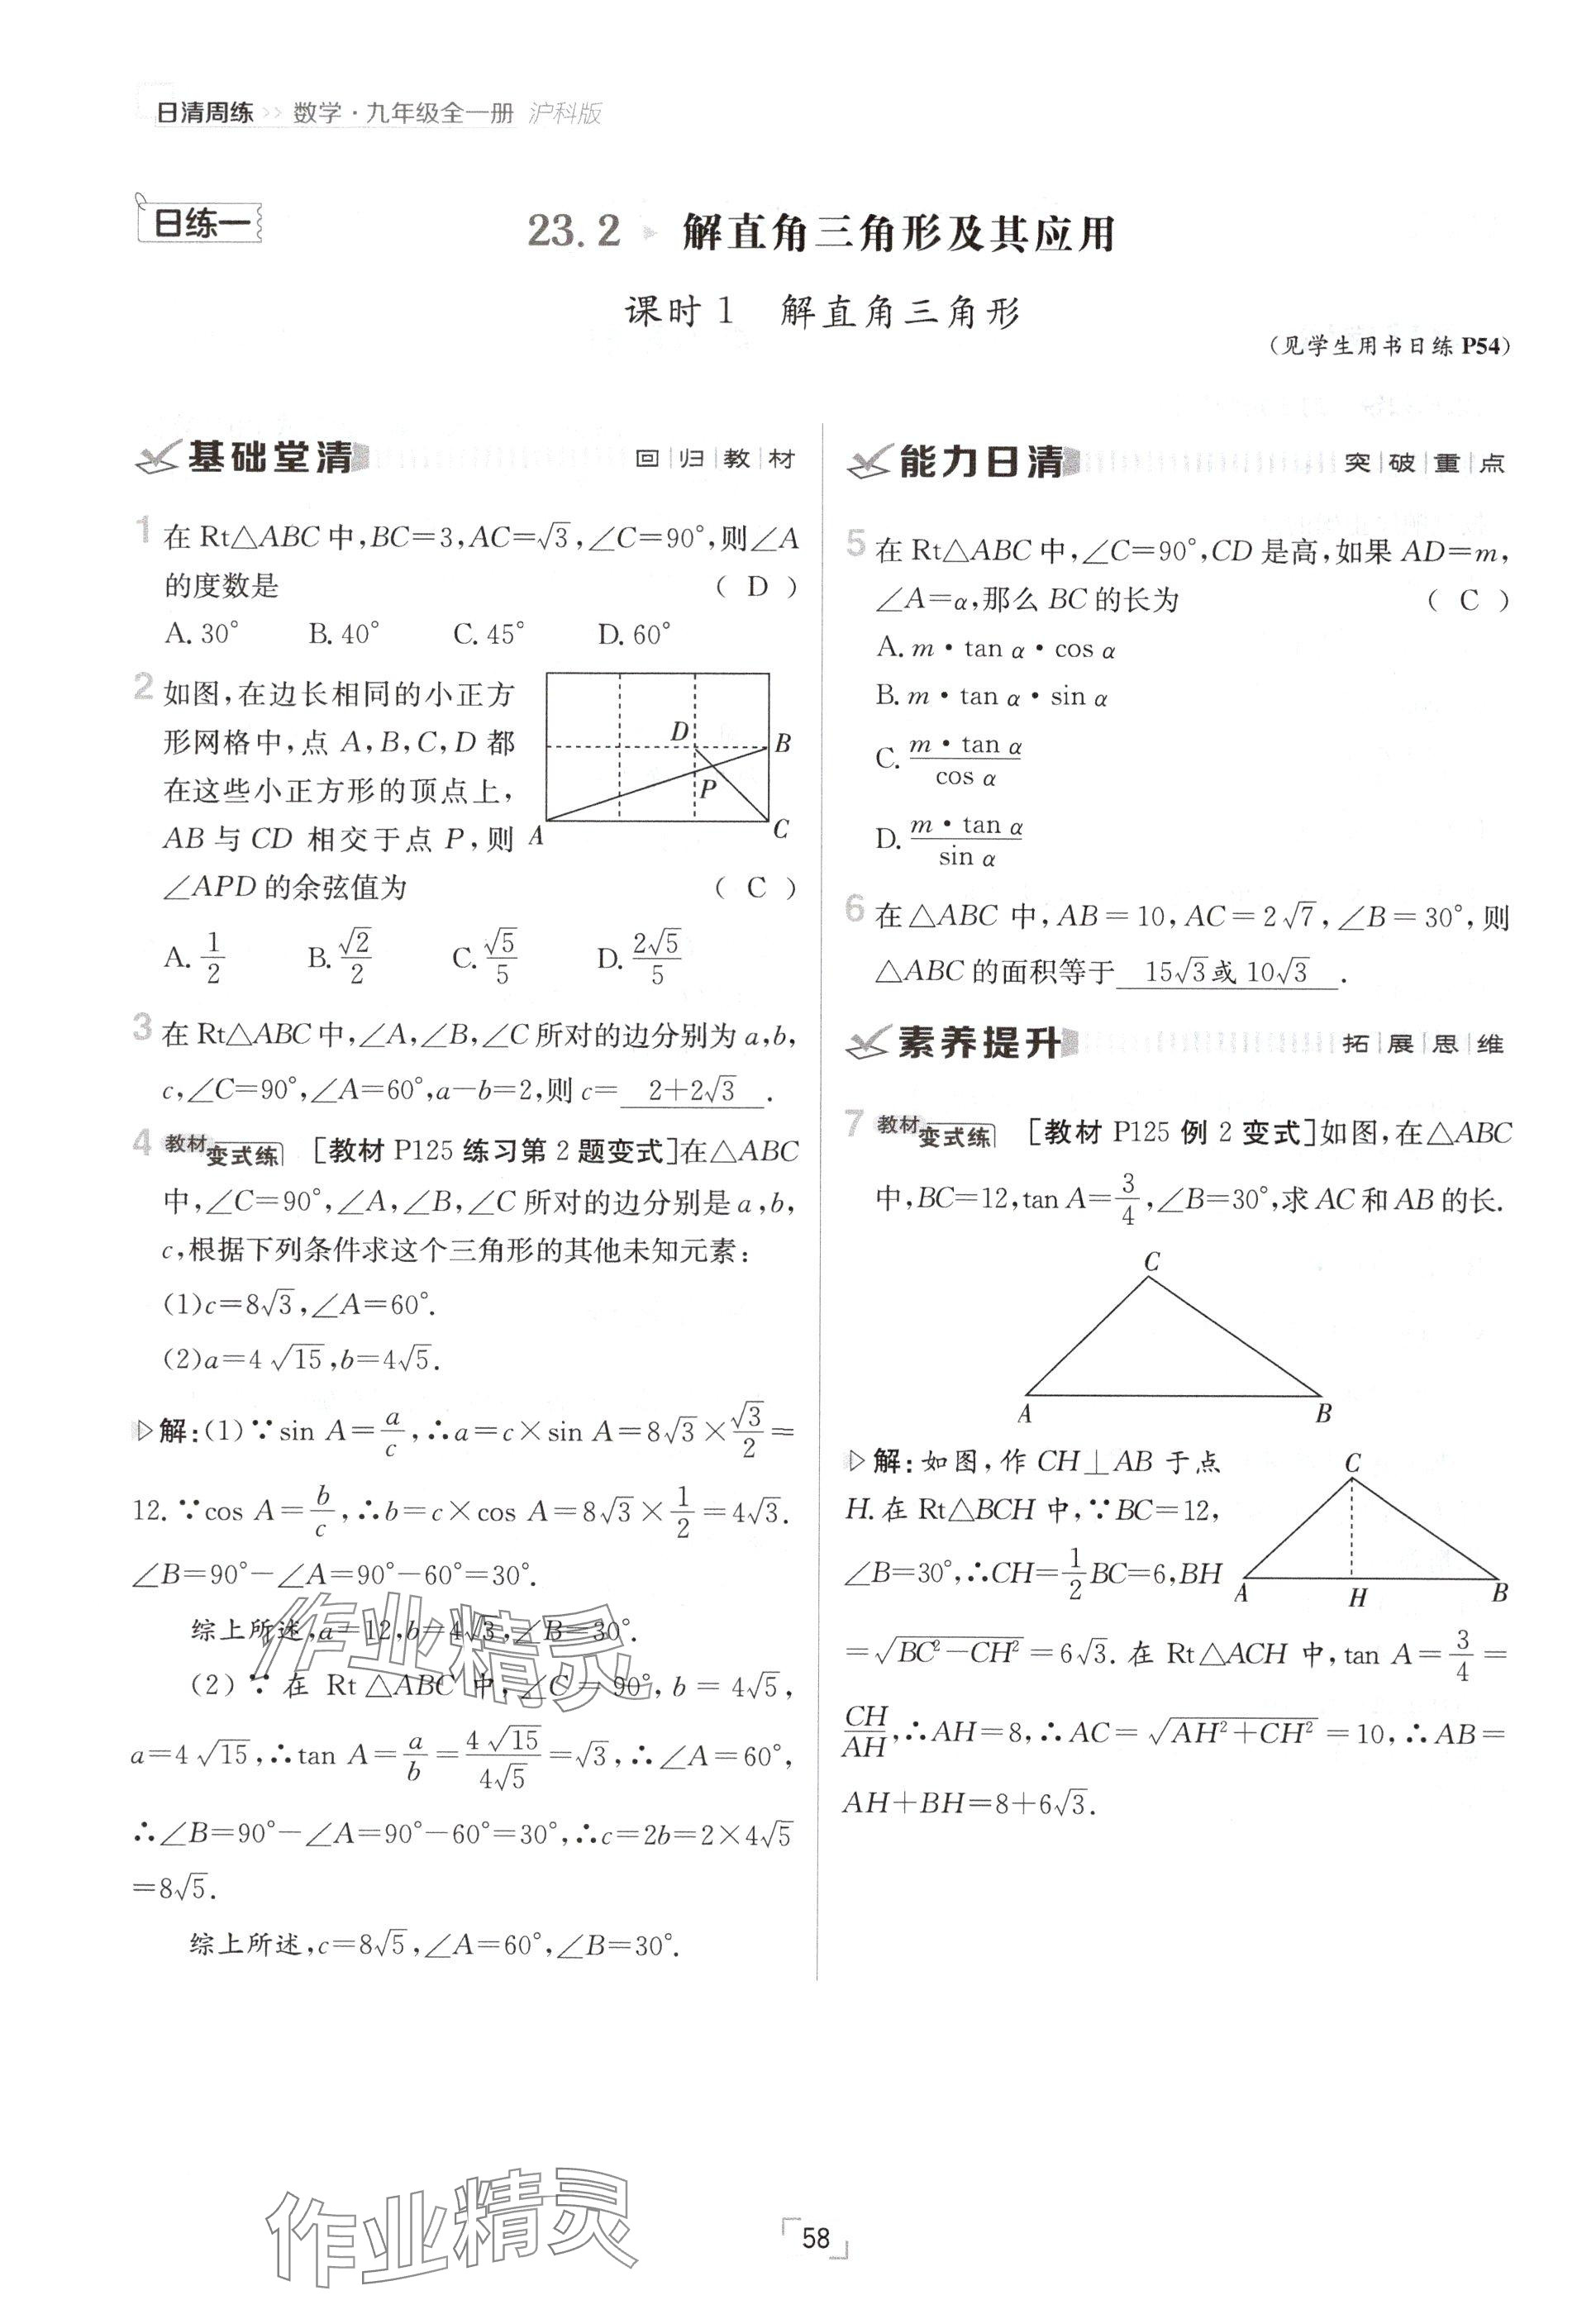 日清周练 >> 数学·九年级全一册 沪科版
日练一
23.2 解直角三角形及其应用
课时1 解直角三角形
(见学生用书日练P54)
基础堂清 回归教材
1 在Rt△ABC中,BC=3,AC=√3,∠C=90°,则∠A
的度数是 ( D )
A.30° B.40° C.45° D.60°
2 如图,在边长相同的小正方
形网格中,点A,B,C,D都
在这些小正方形的顶点上,
AB与CD相交于点P,则
∠APD的余弦值为 ( C )
D
B
P
A
C
A. 1/2 B. √2/2 C. √5/5 D. 2√5/5
3 在Rt△ABC中,∠A,∠B,∠C所对的边分别为a,b,
c,∠C=90°,∠A=60°,a-b=2,则c= 2+2√3 .
4 教材变式练 [教材P125练习第2题变式]在△ABC
中,∠C=90°,∠A,∠B,∠C所对的边分别是a,b,
c,根据下列条件求这个三角形的其他未知元素:
(1)c=8√3,∠A=60°.
(2)a=4√15,b=4√5.
解:(1)∵sin A=a/c,∴a=c×sin A=8√3×√3/2=
12.∵cos A=b/c,∴b=c×cos A=8√3×1/2=4√3.
∠B=90°-∠A=90°-60°=30°.
综上所述,a=12,b=4√3,∠B=30°.
(2)∵在Rt△ABC中,∠C=90°,b=4√5,
a=4√15,∴tan A=a/b=4√15/4√5=√3,∴∠A=60°,
∴∠B=90°-∠A=90°-60°=30°,∴c=2b=2×4√5
=8√5.
综上所述,c=8√5,∠A=60°,∠B=30°.
能力日清 突破重点
5 在Rt△ABC中,∠C=90°,CD是高,如果AD=m,
∠A=α,那么BC的长为 ( C )
A.m·tan α·cos α
B.m·tan α·sin α
C. m·tan α/cos α
D. m·tan α/sin α
6 在△ABC中,AB=10,AC=2√7,∠B=30°,则
△ABC的面积等于 15√3或10√3 .
素养提升 拓展思维
7 教材变式练 [教材P125例2变式]如图,在△ABC
中,BC=12,tan A=3/4,∠B=30°,求AC和AB的长.
C
A
B
解:如图,作CH⊥AB于点
H.在Rt△BCH中,∵BC=12,
∠B=30°,∴CH=1/2BC=6,BH
C
A
H
B
=√(BC²-CH²)=6√3.在Rt△ACH中,tan A=3/4=
CH/AH,∴AH=8,∴AC=√(AH²+CH²)=10,∴AB=
AH+BH=8+6√3.
作业精灵
作业精灵
58